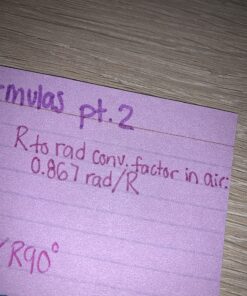 mulas pt.2
R to rad conv. factor in air:
0.867 rad/R
/R90°